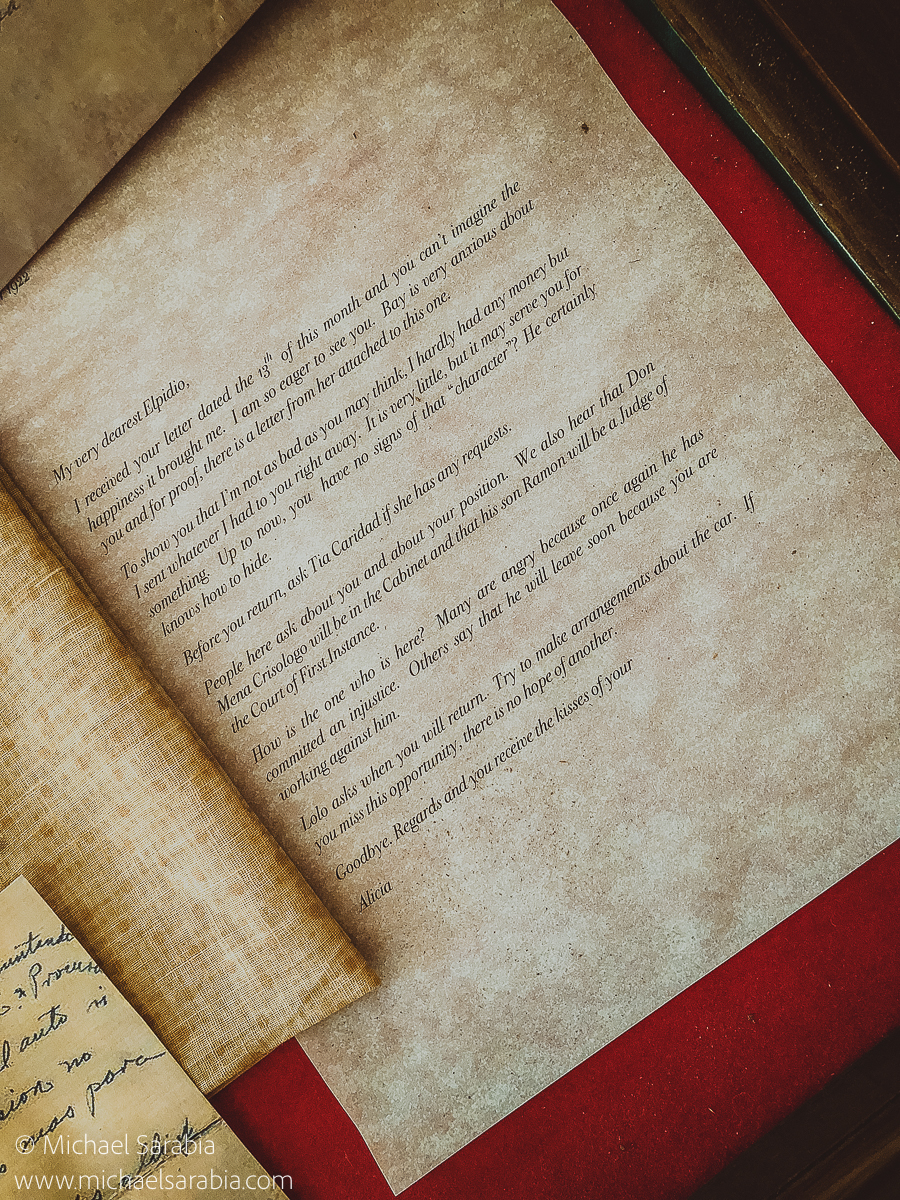 1922
My very dearest Elpidio,
I received your letter dated the 13th of this month and you can't imagine the
happiness it brought me. I am so eager to see you. Bay is very anxious about
you and for proof, there is a letter from her attached to this one.
To show you that I'm not as bad as you may think, I hardly had any money but
I sent whatever I had to you right away. It is very little, but it may serve you for
something. Up to now, you have no signs of that "character"? He certainly
knows how to hide.
Before you return, ask Tia Caridad if she has any requests.
People here ask about you and about your position. We also hear that Don
Mena Crisologo will be in the Cabinet and that his son Ramon will be a Judge of
the Court of First Instance.
How is the one who is here? Many are angry because once again he has
committed an injustice. Others say that he will leave soon because you are
working against him.
Lolo asks when you will return.. Try to make arrangements about the car. If
you miss this opportunity, there is no hope of another.
Goodbye. Regards and you receive the kisses of your
Alicia
auto
no
para
© Michael Sarabia
www.michaelsarabia.com